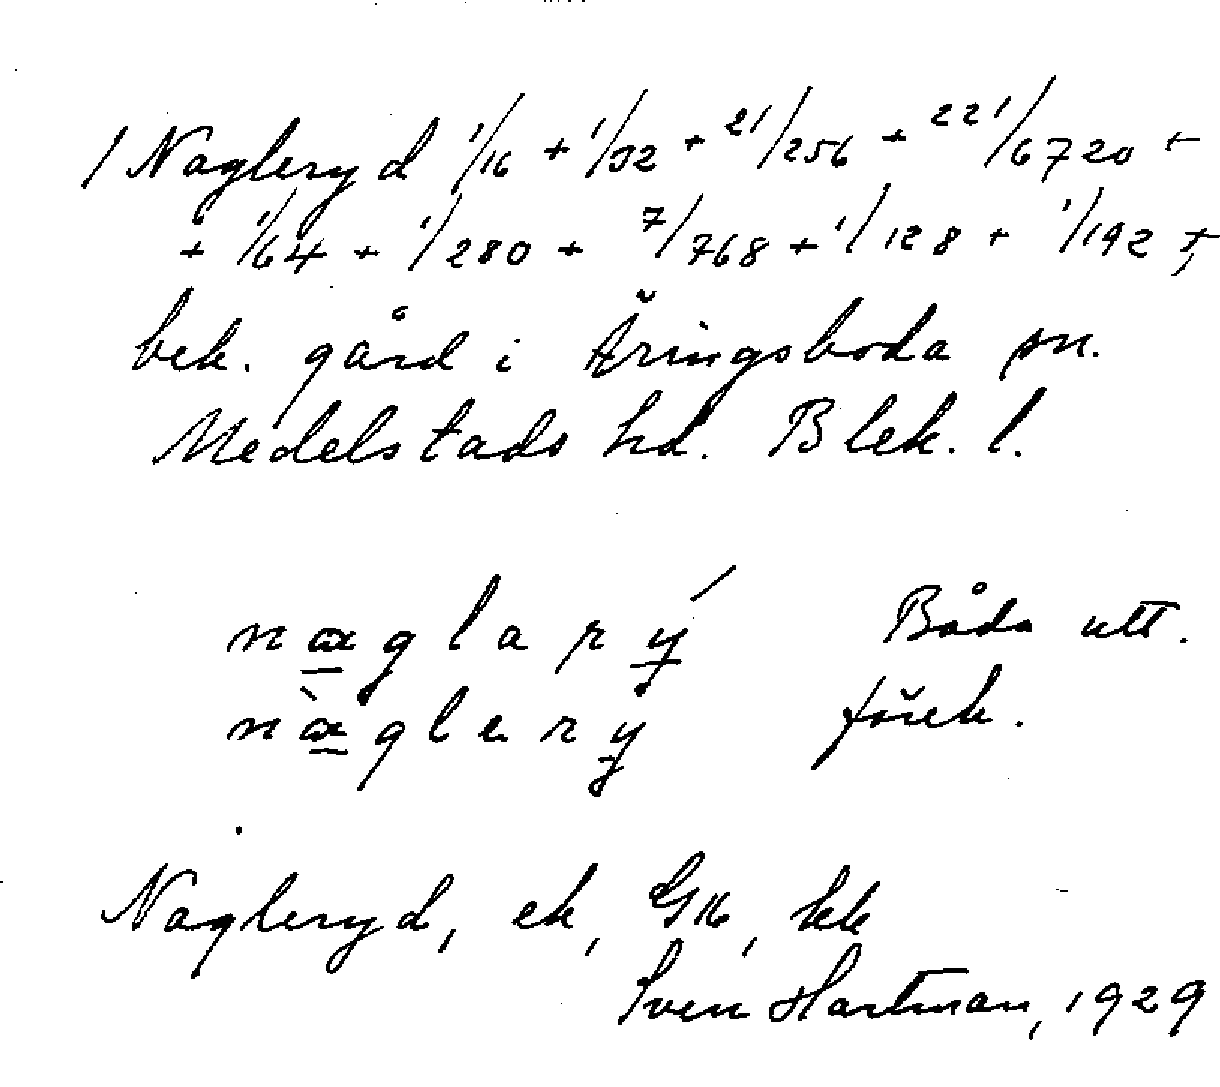 1 Nagleryd 1/16 + 1/32 + 21/256 + 221/6720 +
+ 1/64 + 1/280 + 7/768 + 1/128 + 1/192 +,
bek. gård i Åringsboda sn.
Medelstads hd. Blek. l.
naglarý Båda utt.
nàglery förek.
Nagleryd, ek, GK, kk
Sven Hartman, 1929